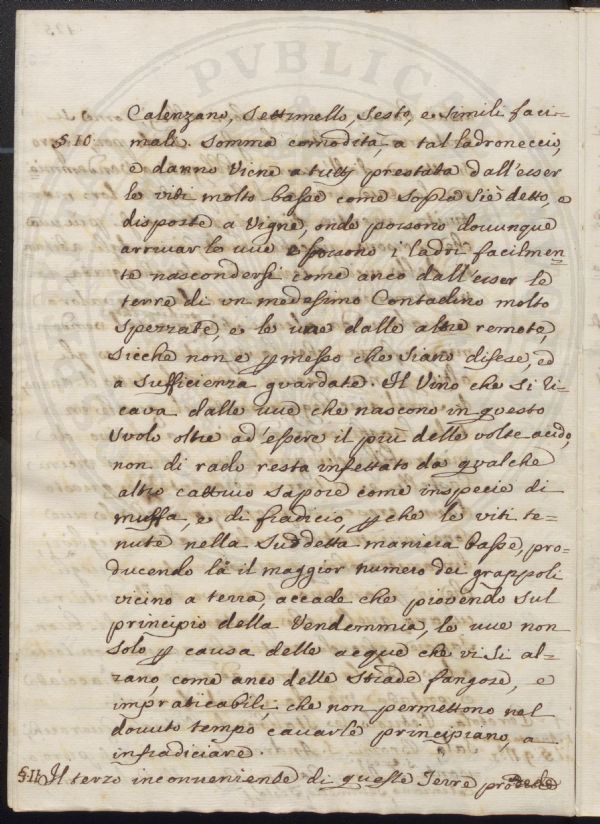 Calenzano, Settimello, Sesto, e simili faci=
§. 10. mali. Somma comodità, a tal ladroneccio,
e danno viene a tutti prestata dall'esser
le viti molto basse come sopra si è detto, e
disposte a Vigne, onde possono dovunque
arrivar le uve e possono i ladri facilmen=
te nascondersi come anco dall'esser le
terre di un medesimo Contadino molto
spezzate, e le une dalle altre remote,
sicche non è p messo che siano difese, ed
a sufficienza guardate. Il Vino che si ri=
cava dalle uve che nascono in questo
suolo oltre ad'essere il più delle volte acido,
non di rado resta infettato da qualche
altro cattivo sapore come inspecie di
muffa, e di fradicio, p che le viti te=
nute nella suddetta maniera basse, pro=
ducendo là il maggior numero dei grappoli
vicino a terra, accade che piovendo sul
principio della Vendemmia, le uve non
solo p causa delle acque che vi si al=
zano, come anco delle strade fangose, e
impraticabili, che non permettono nel
dovuto tempo cavarle principiano, a
infradiciare.
§. 11. Il terzo inconveniente di queste Terre procede